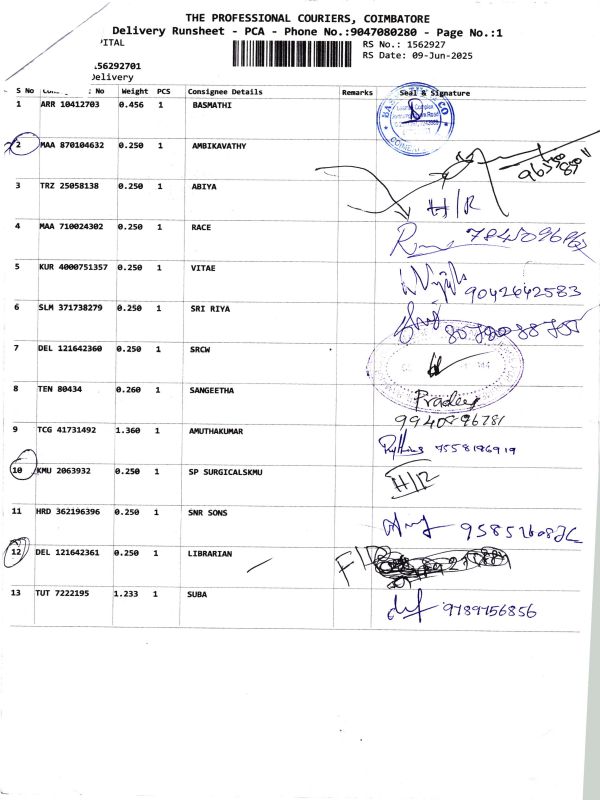 THE PROFESSIONAL COURIERS, COIMBATORE
Delivery Runsheet - PCA - Phone No.:9047080280 - Page No.:1
PITAL
RS No.: 1562927
RS Date: 09-Jun-2025
.56292701
Delivery
S No No Weight PCS Consignee Details Remarks Seal & Signature
1 ARR 10412703 0.456 1 BASMATHI
2 MAA 870104632 0.250 1 AMBIKAVATHY
3 TRZ 25058138 0.250 1 ABIYA H/R
4 MAA 710024302 0.250 1 RACE
5 KUR 4000751357 0.250 1 VITAE 9042642583
6 SLM 371738279 0.250 1 SRI RIYA
7 DEL 121642360 0.250 1 SRCW
8 TEN 80434 0.260 1 SANGEETHA Pradeep
9 TCG 41731492 1.360 1 AMUTHAKUMAR
10 KMU 2063932 0.250 1 SP SURGICALSKMU H/R
11 HRD 362196396 0.250 1 SNR SONS
12 DEL 121642361 0.250 1 LIBRARIAN
13 TUT 7222195 1.233 1 SUBA 9789756856